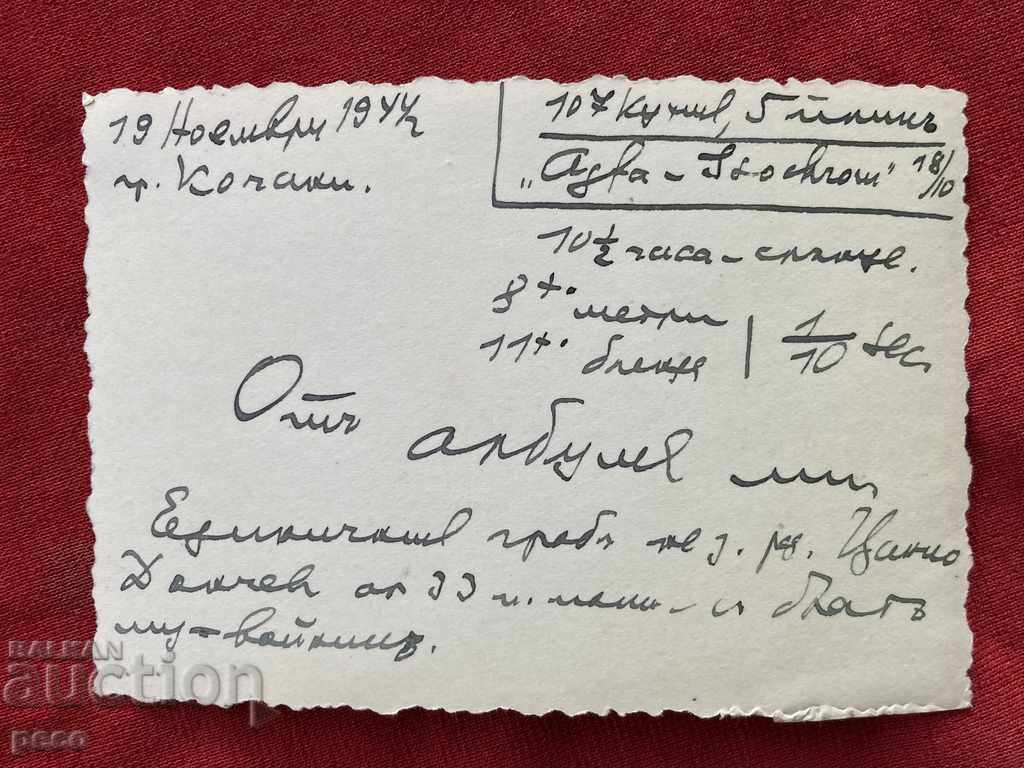 19 Ноември 1944
гр. Кочани.
107 , 5
„Agfa – Isochrom" 18/10
10 ½ часа – слънце.
8 + · метри
11 + · бленда | 1/10 sec
Отъ албума ми
Единичния гробъ на з. Цанко
Дончев от 33 п. полк – и братъ
му – войникъ.
BALKAN
auction
peco